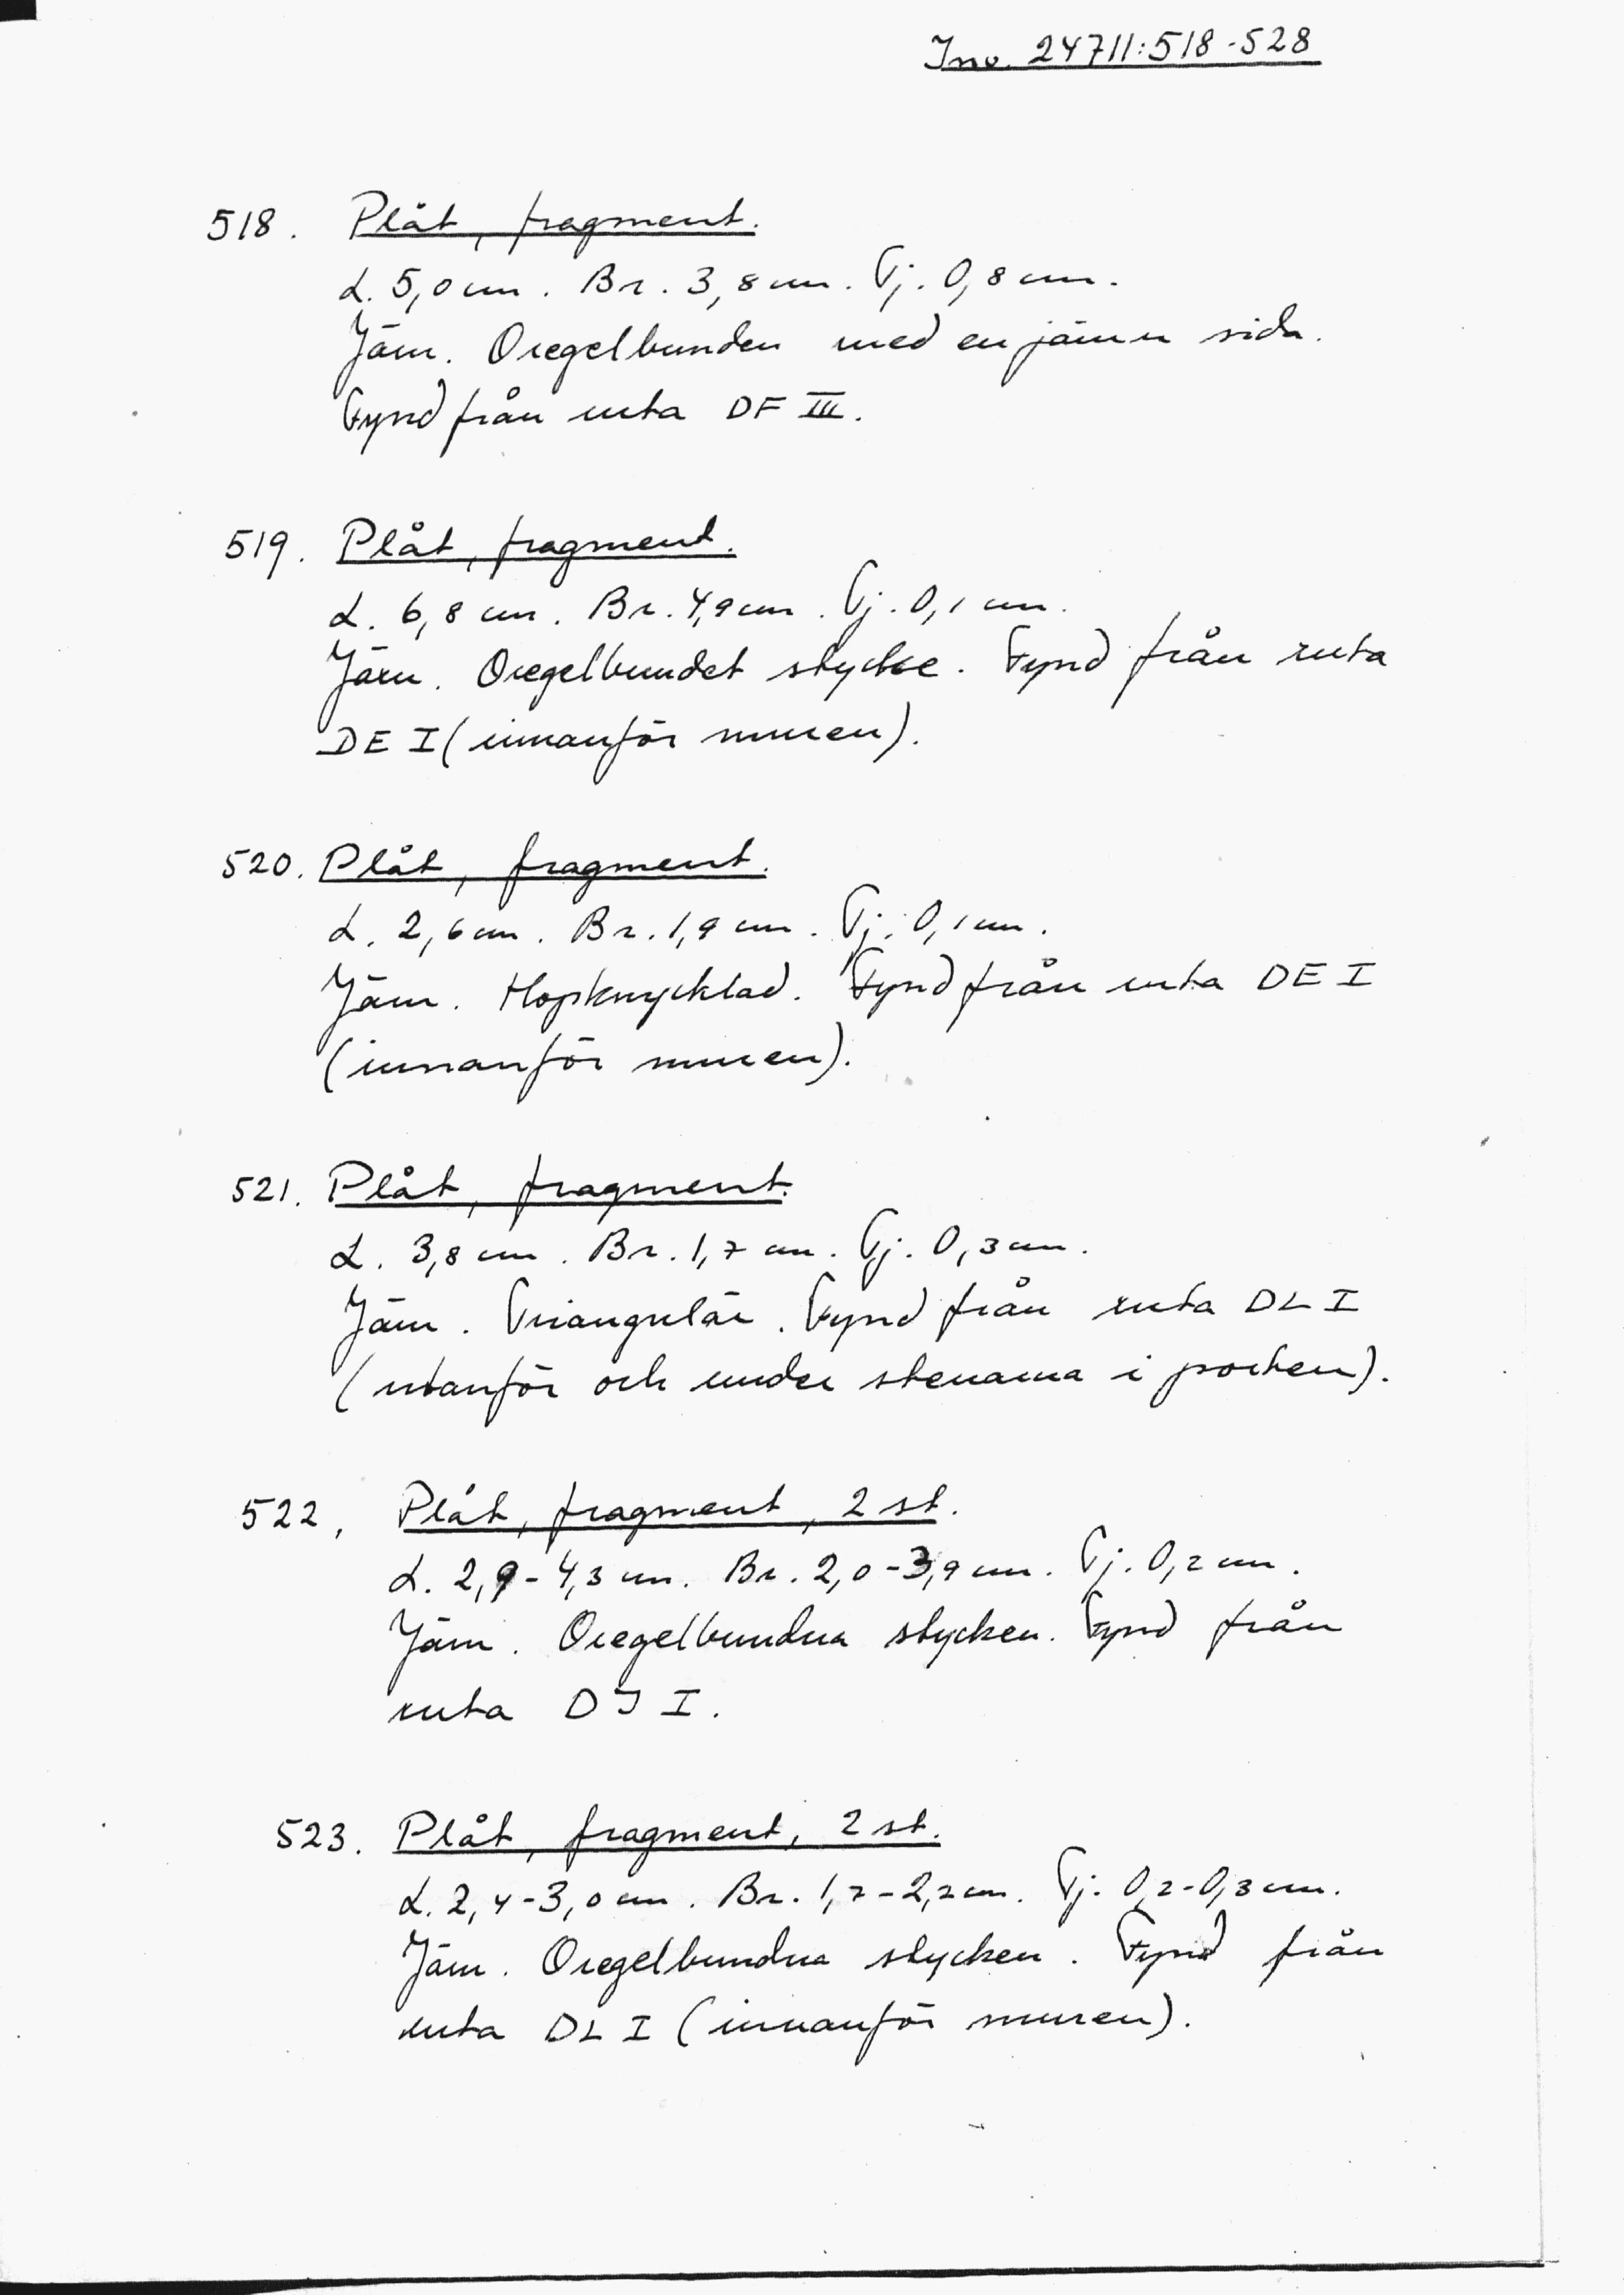 Inv. 24711:518-528
518. Plåt, fragment.
L. 5,0 cm. Br. 3,8 cm. Tj. 0,8 cm.
Järn. Oregelbunden med en jämn sida.
Fynd från ruta DF III.
519. Plåt, fragment.
L. 6,8 cm. Br. 4,9 cm. Tj. 0,1 cm.
Järn. Oregelbundet stycke. Fynd från ruta
DE I (innanför muren).
520. Plåt, fragment.
L. 2,6 cm. Br. 1,9 cm. Tj. 0,1 cm.
Järn. Hopknycklad. Fynd från ruta DE I
(innanför muren).
521. Plåt, fragment.
L. 3,8 cm. Br. 1,7 cm. Tj. 0,3 cm.
Järn. Triangulär. Fynd från ruta DL I
(utanför och under stenarna i porten).
522. Plåt, fragment, 2 st.
L. 2,9-4,3 cm. Br. 2,0-3,9 cm. Tj. 0,2 cm.
Järn. Oregelbundna stycken. Fynd från
ruta DJ I.
523. Plåt, fragment, 2 st.
L. 2,4-3,0 cm. Br. 1,7-2,2 cm. Tj. 0,2-0,3 cm.
Järn. Oregelbundna stycken. Fynd från
ruta DL I (innanför muren).